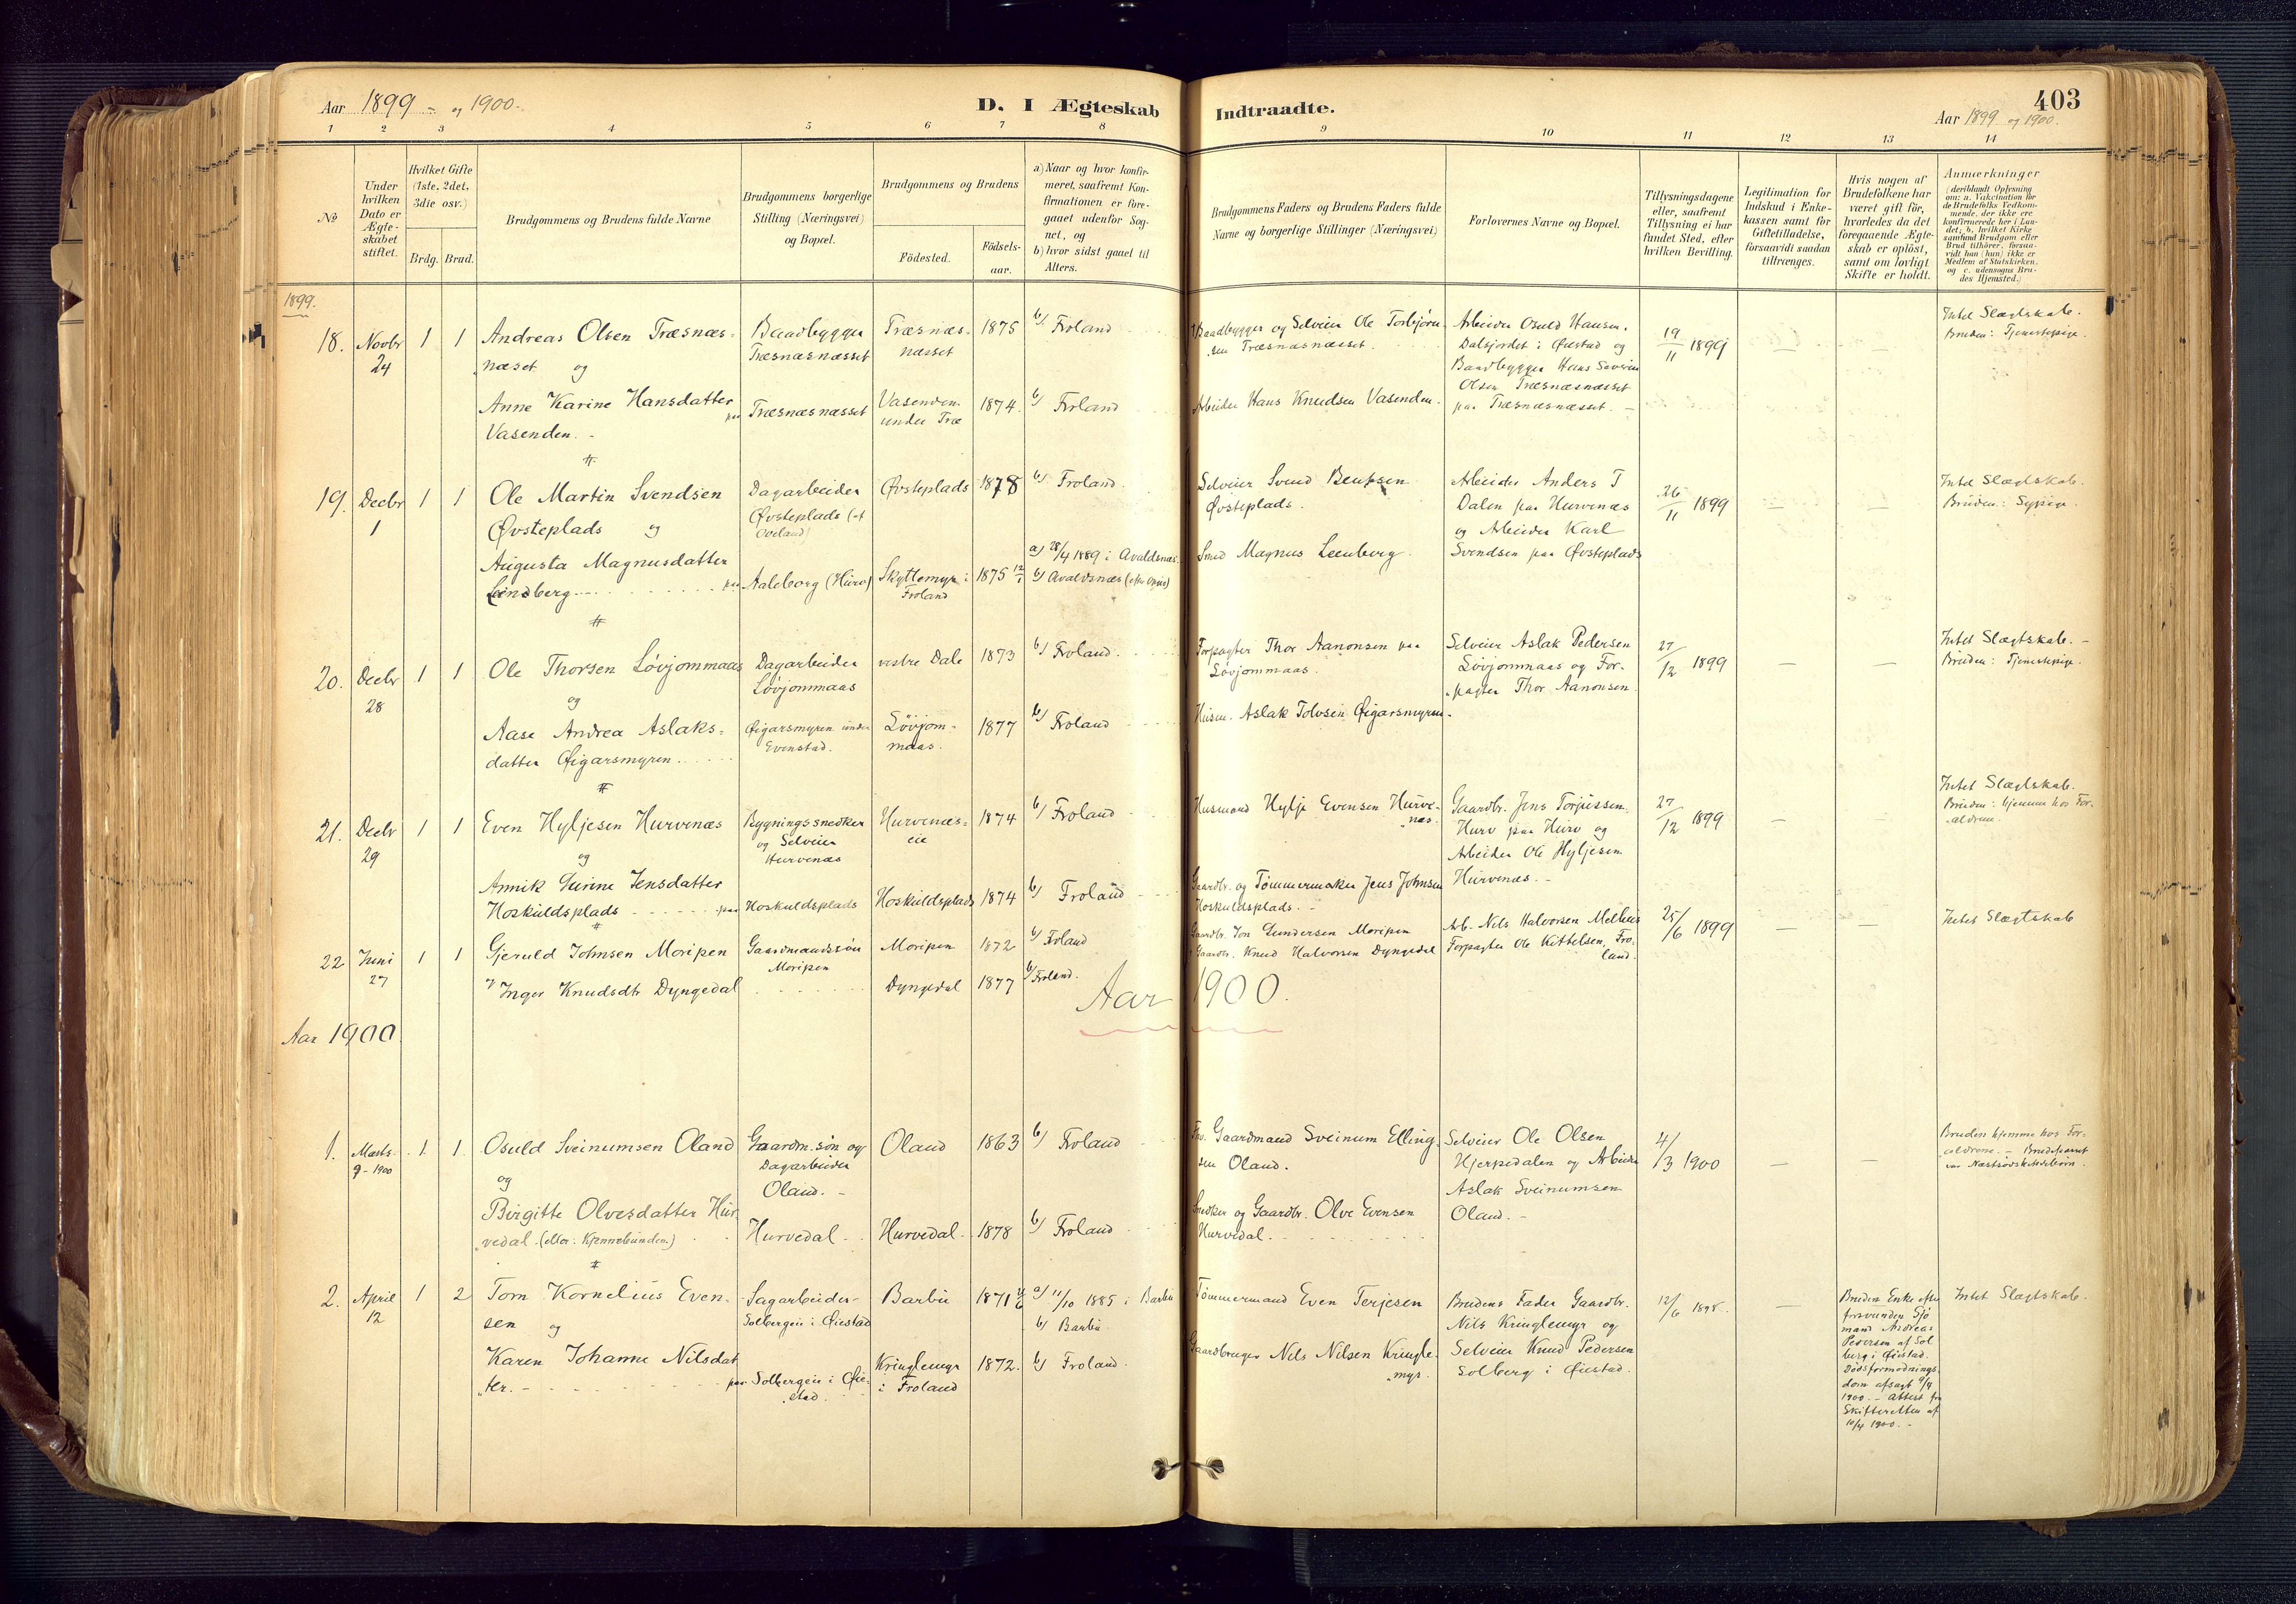 Aar 1899 og 1900.
D. I Ægteskab Indtraadte.
403
Aar 1899 og 1900.
1 2 3 4 5 6 7 8 9 10 11 12 13 14
No
Under hvilken Dato er Ægteskabet stiftet.
Hvilket Gifte (1ste, 2det, 3die osv.)
Brdg. Brud.
Brudgommens og Brudens fulde Navne
Brudgommens borgerlige Stilling (Næringsvei) og Bopæl.
Brudgommens og Brudens
Födested.
Födselsaar.
a) Naar og hvor konfirmeret, saafremt Konfirmationen er foregaaet udenfor Sognet, og
b) hvor sidst gaaet til Alters.
Brudgommens Faders og Brudens Faders fulde Navne og borgerlige Stillinger (Næringsvei)
Forlovernes Navne og Bopæl.
Tillysningsdagene eller, saafremt Tillysning ei har fundet Sted, efter hvilken Bevilling.
Legitimation for Indskud i Enkekassen samt for Giftetilladelse, forsaavidt saadan tiltrænges.
Hvis nogen af Brudefolkene har været gift för, hvorledes da det foregaaende Ægteskab er oplöst, samt om lovligt Skifte er holdt.
Anmærkninger
(deriblandt Oplysning om: a. Vakcination for de Brudefolks Vedkommende, der ikke ere konfirmerede her i Landet; b. hvilket Kirkesamfund Brudgom eller Brud tilhörer, forsaavidt han (hun) ikke er Medlem af Statskirken, og c. udensogns Brudes Hjemsted.)
1899.
18. Novbr 24 1 1
Andreas Olsen Træsnæsnæset og
Baadbygger Træsnæsnæsset
Træsnæsnæsset 1875
b/ Froland
Baadbygger og Selveier Ole Torbjørnsen Træsnæsnæsset.
Arbeider Osuld Hansen, Dalsjordet i Øiestad og Baadbygger Hans Severin Olsen Træsnæsnæsset paa Træsnæsnæsset. –
19/11 1899
Intet Slægtskab.
Bruden: Tjenestepige.
Anne Karine Hansdatter Vasenden. - paa Træsnæsnæsset
Vasenden under Træ 1874.
b/ Froland
Arbeider Hans Knudsen Vasenden.
19. Decbr 1 1 1
Ole Martin Svendsen Øvsteplads og
Dagarbeider Øvsteplads (af Oveland)
Øvsteplads 1878
b/ Froland.
Selveier Svend Bentsen Øvsteplads.
Arbeider Anders T Dalen paa Hurvenæs og Arbeider Karl Svendsen paa Øvsteplads
26/11 1899
Intet Slægtskab.
Bruden: Sypige.
Augusta Magnusdatter Leenberg paa Aaleborg (Hurv)
Skyttemyr i Froland 1875 12/1
a) 28/4 1889 i Avaldsnæs
b) Avaldsnæs
Smed Magnus Leenberg.
20. Decbr 28 1 1
Ole Thorsen Løvjommaas og
Dagarbeider Løvjommaas
vestre Dale 1873
b/ Froland.
Forpagter Thor Aanonsen paa Løvjommaas.
Selveier Aslak Pedersen Løvjommaas og Forpagter Thor Aanonsen.
27/12 1899
Intet Slægtskab. –
Bruden: Tjenestepige.
Aase Andrea Aslaksdatter Øigarsmyren
Øigarsmyren under Evenstad.
Løvjommaas. 1877
b/ Froland
Husm. Aslak Tolvsen Øigarsmyren.
21. Decbr 29 1 1
Even Hyljesen Hurvenæs og
Bygningssnedker og Selveier Hurvenæs
Hurvenæseie 1874
b/ Froland
Husmand Hylje Evensen Hurvenæs.
Gaardbr. Jens Torjussen Hurv paa Hurv og Arbeider Ole Hyljesen Hurvenæs. –
27/12 1899
Intet Slægtskab.
Bruden: hjemme hos Forældrene.
Annik Gurine Jensdatter Hoskuldsplads paa Hoskuldsplads
Hoskuldsplads 1874
b/ Froland
Gaardbr. og Tømmermaker Jens Johnsen Hoskuldsplads. –
22 Juni 27 1 1
Gjeruld Johnsen Moripen
Gaardmandssøn Moripen
Moripen 1872
b/ Froland
Gaardbr. Jon Gundersen Moripen
Arb. Nils Halvorsen Melhus
Forpagter Ole Kittelsen, Froland.
25/6 1899
Intet Slægtskab
Inger Knudsdtr Dyngedal
Dyngedal 1877
b/ Froland.
Gaardbr. Knud Halvorsen Dyngedal
Aar 1900.
Aar 1900
1. Marts 9 - 1900 1 1
Osuld Sveinumsen Oland og
Gaardm.søn og Dagarbeider Oland. –
Oland 1863
b/ Froland
Fhv. Gaardmand Sveinum Ellingsen Oland.
Selveier Ole Olsen Hjerpedalen og Arbeider Aslak Sveinumsen Oland. –
4/3 1900
Bruden hjemme hos Forældrene. – Brudeparret var Næstsødskendebørn.
Birgitte Olvesdatter Hurvedal
Hurvedal
Hurvedal 1878
b/ Froland
Snedker og Gaardbr. Olve Evensen Hurvedal.
2. April 12 1 2
Tom Kornelius Evensen og
Sagarbeider Solbergeie i Øiestad
Barbu 1871
a) 11/10 1885 i Barbu
b) Barbu
Tømmermand Even Terjesen
Brudens Fader Gaardbr. Nils Kringlemyr og Selveier Knud Pedersen Solberg i Øiestad.
12/6 1898.
Bruden Enke efter forsvunden Sjømand Andreas Pedersen af Solberg i Øiestad. Dødsformodningsdom afsagt 9/4 1900. – Attest fra Skifteretten af 10/4 1900. –
Intet Slægtskab.
Karen Johanne Nilsdatter. – paa Solbergeie i Øiestad.
Kringlemyr i Froland 1872.
b) Froland.
Gaardbruger Nils Nilsen Kringlemyr.